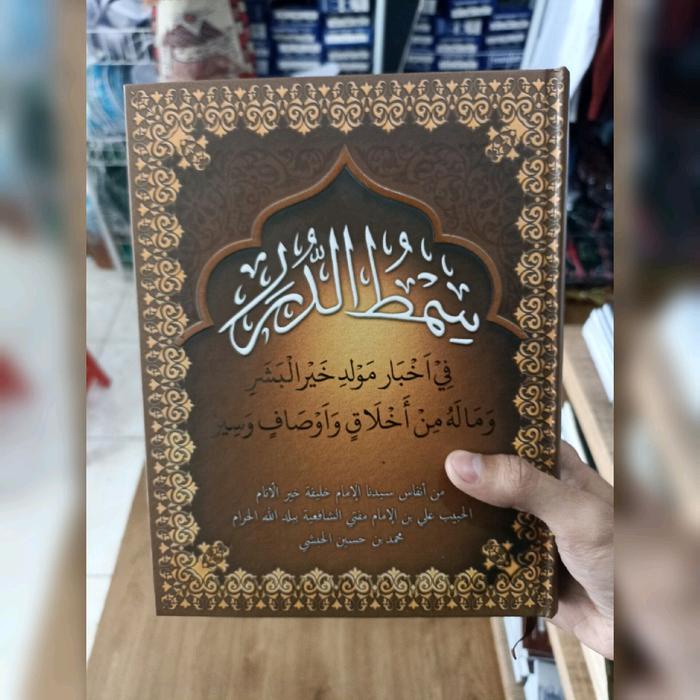 سِمْطُ الدُّرَرِ
فِيْ اَخْبَارِ مَوْلِدِ خَيْرِ الْبَشَرِ
وَمَا لَهُ مِنْ أَخْلَاقٍ وَاَوْصَافٍ وَسِيَرٍ
من أنفاس سيدنا الإمام خليفة خير الأنام
الحبيب علي بن الإمام مفتي الشافعية ببلد الله الحرام
محمد بن حسين الحبشي